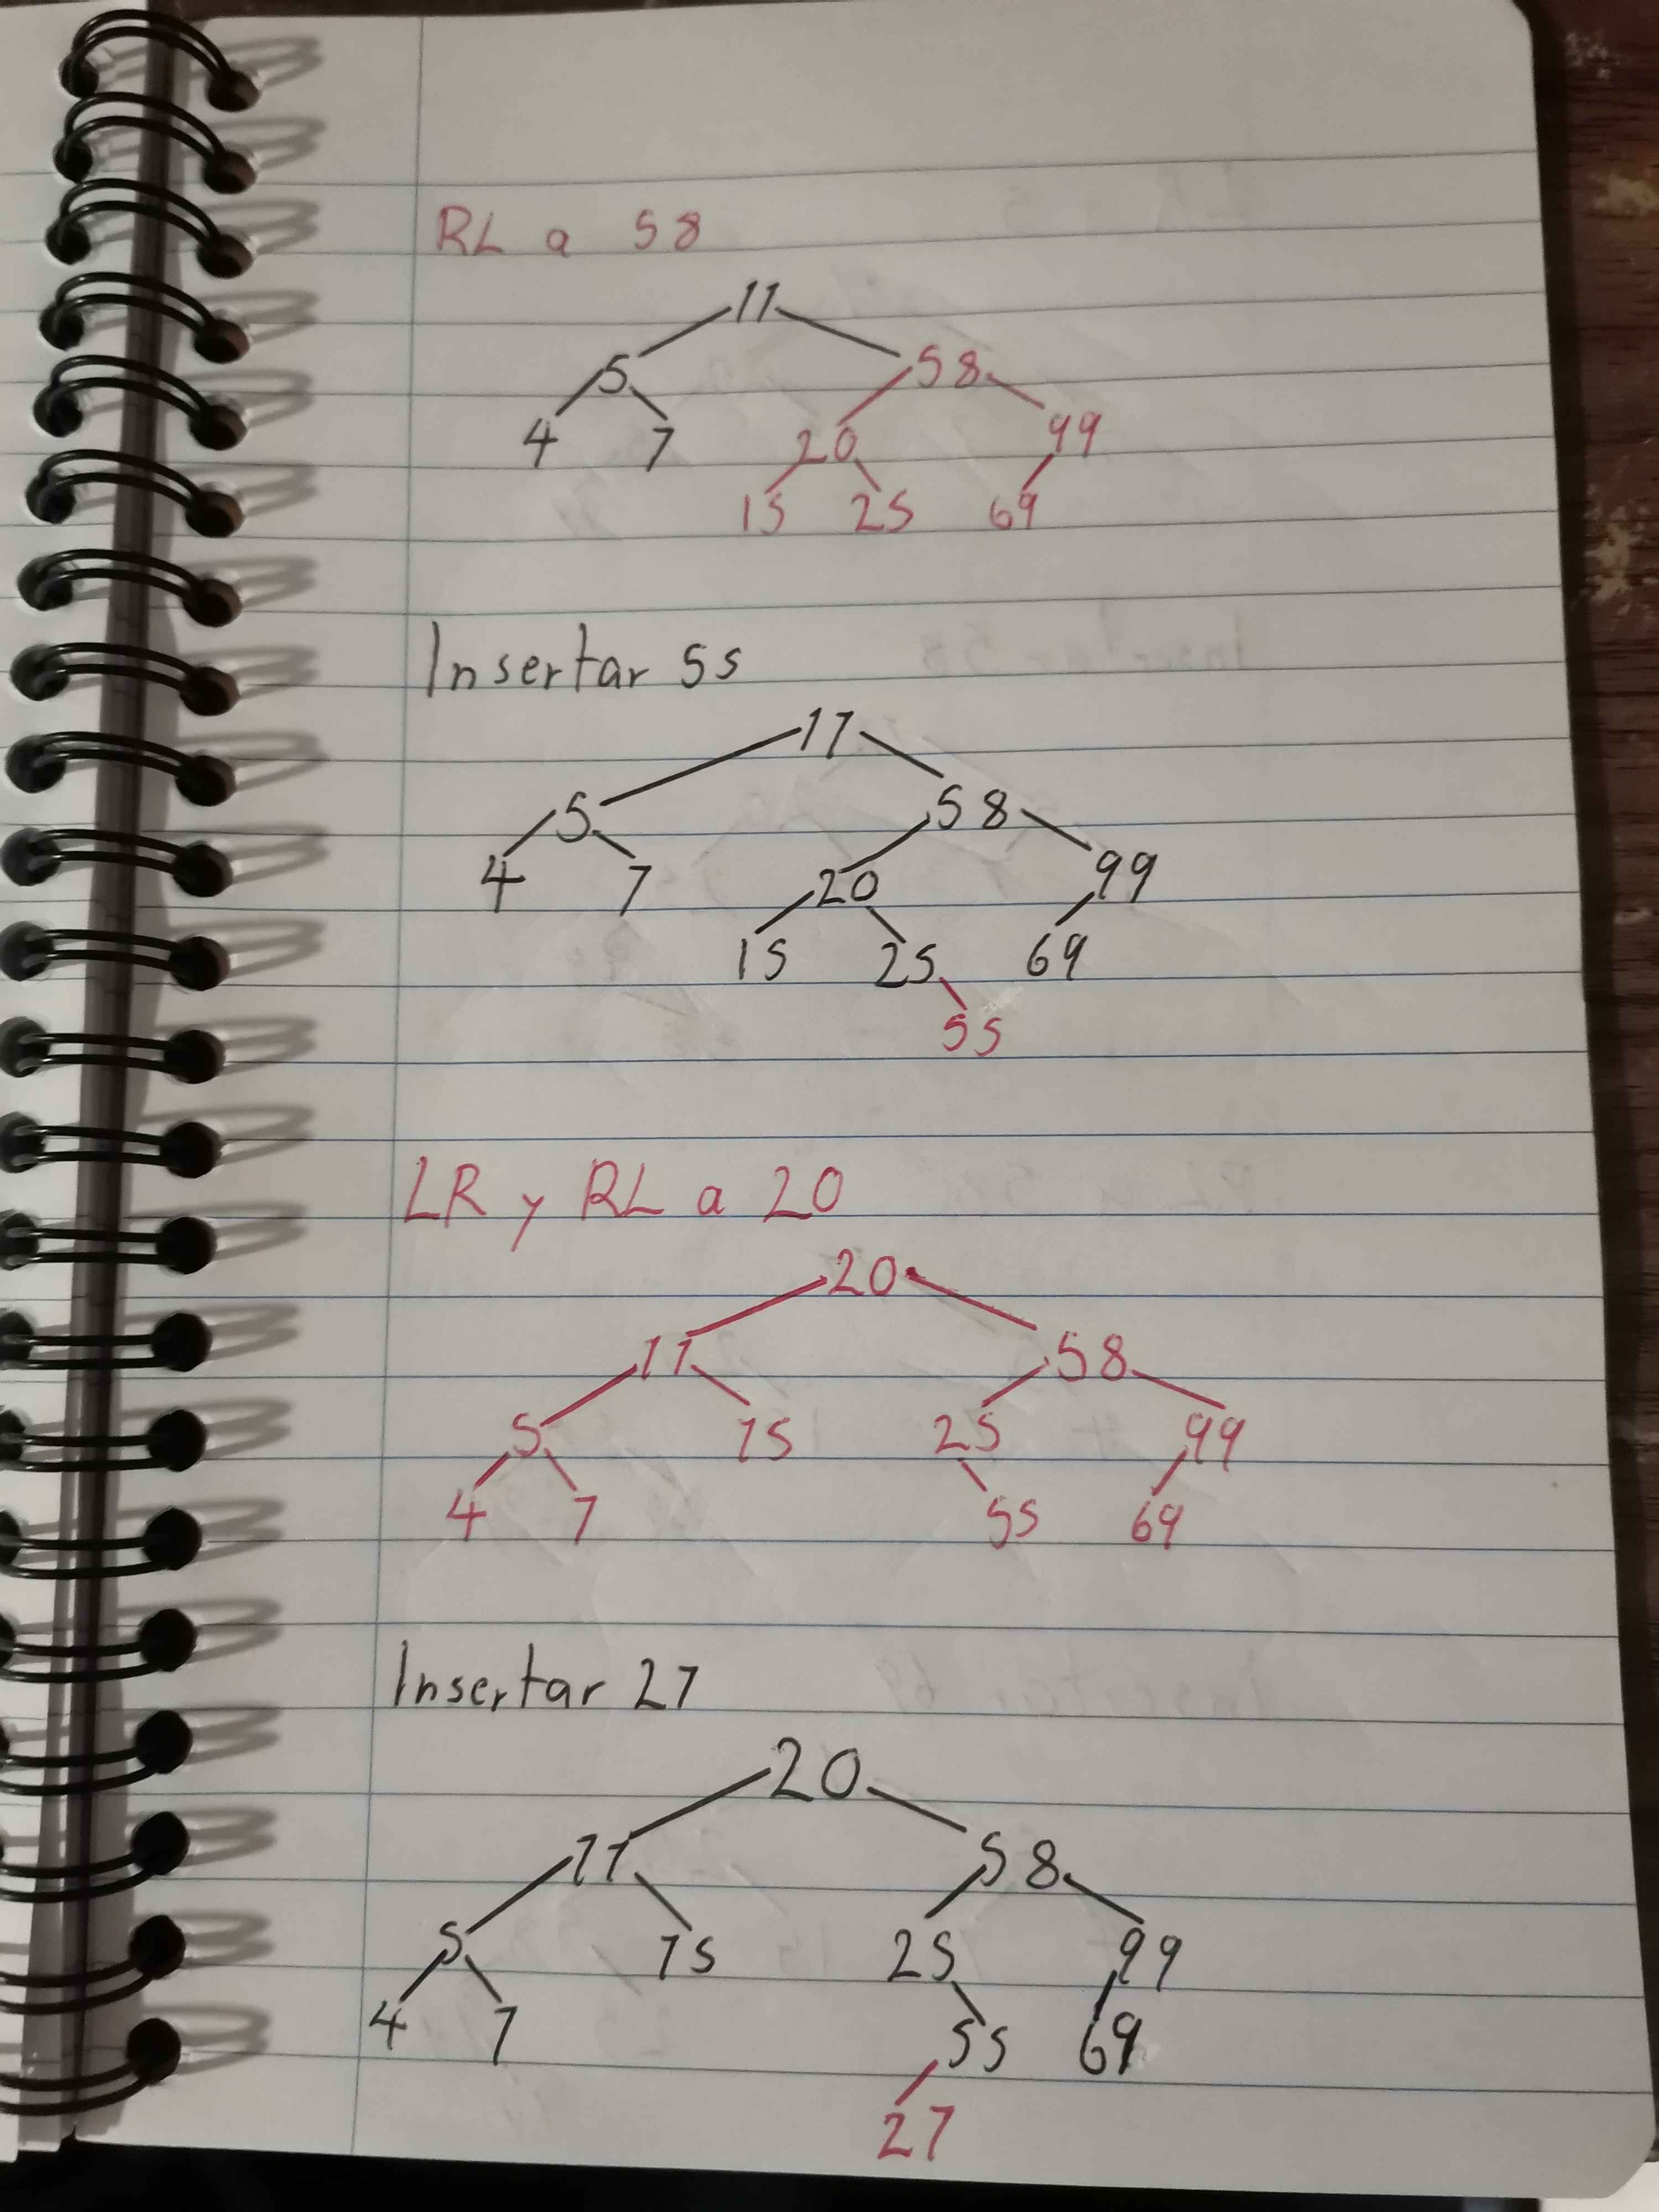 RL a 58
11
5 58
4 7 20 99
15 25 69
Insertar 55
11
5 58
4 7 20 99
15 25 69
55
LR y RL a 20
20
11 58
5 15 25 99
4 7 55 69
Insertar 27
20
11 58
5 15 25 99
4 7 55 69
27